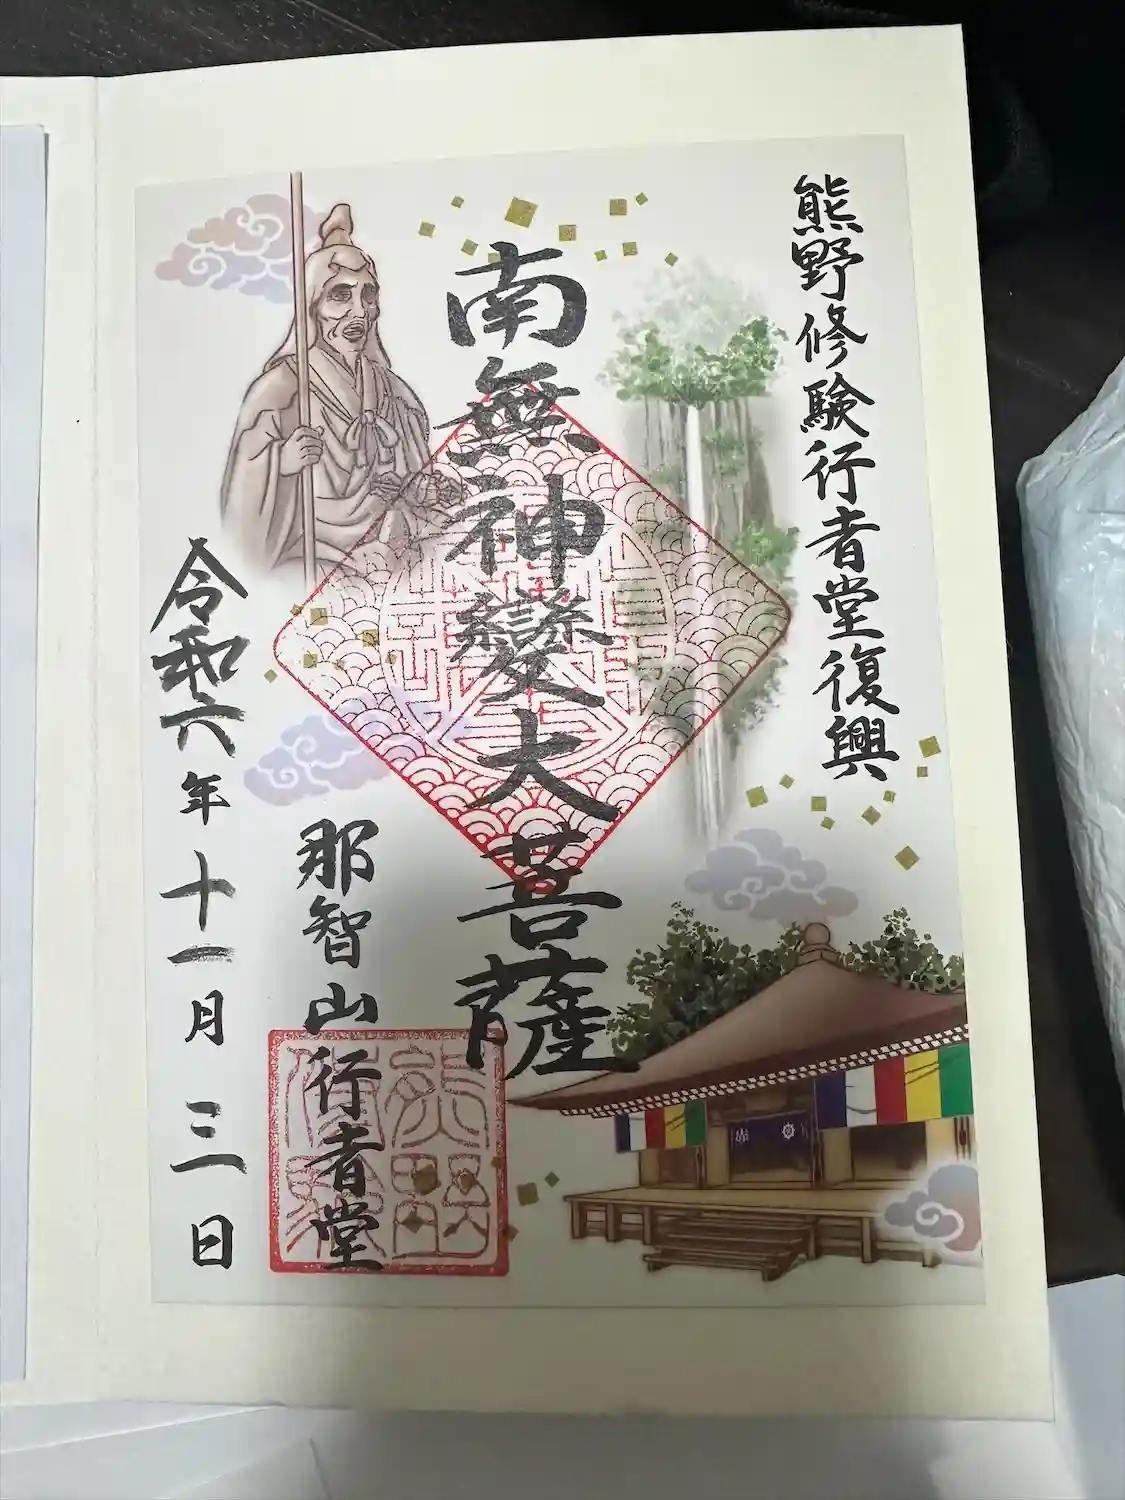 熊野修験行者堂復興
南無神變大菩薩
那智山行者堂
令和六年十一月三日
熊野
修験